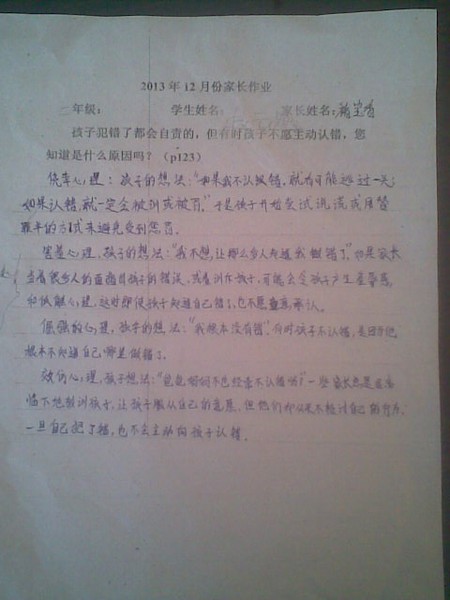 2013年12月份家长作业
二年级： 学生姓名： 家长姓名：
孩子犯错了都会自责的，但有时孩子不愿主动认错，您
知道是什么原因吗？（p123）
侥幸心理：孩子的想法：“如果我不认错，就有可能逃过一关；
如果认错，就一定会被训或被罚。”于是孩子开始尝试说谎或用替
罪羊的方式来避免受到惩罚。
害羞心理，孩子的想法：“我不想让那么多人知道我做错了”，如果家长
当着很多人的面指责孩子的错误，或者训斥孩子，可能会令孩子产生羞辱感
和抵触心理，这时即使孩子知道自己错了，也不愿意承认。
倔强的心理，孩子的想法：“我根本没有错”，有时孩子不认错，是因为他
根本不知道自己哪里做错了。
效仿心理，孩子想法：“爸爸妈妈不也经常不认错吗？”一些家长总是居高
临下地教训孩子，让孩子服从自己的意愿，但他们却从来不检讨自己的行为，
一旦自己犯了错，也不会主动向孩子认错。